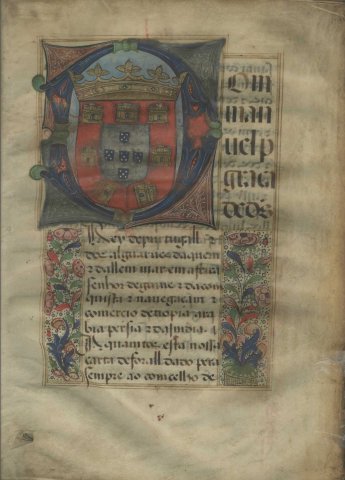 Dom
manu
uel p
graça
de ds
Rey de purtugall &
dos alguarues daquem
& dallem mar em affrica
senhor de guine & da con
quista & nauegaçam &
comercio detiopia ara
bia persia & da india. A
quantos esta nossa
carta de forall dado pera
sempre ao concelho de